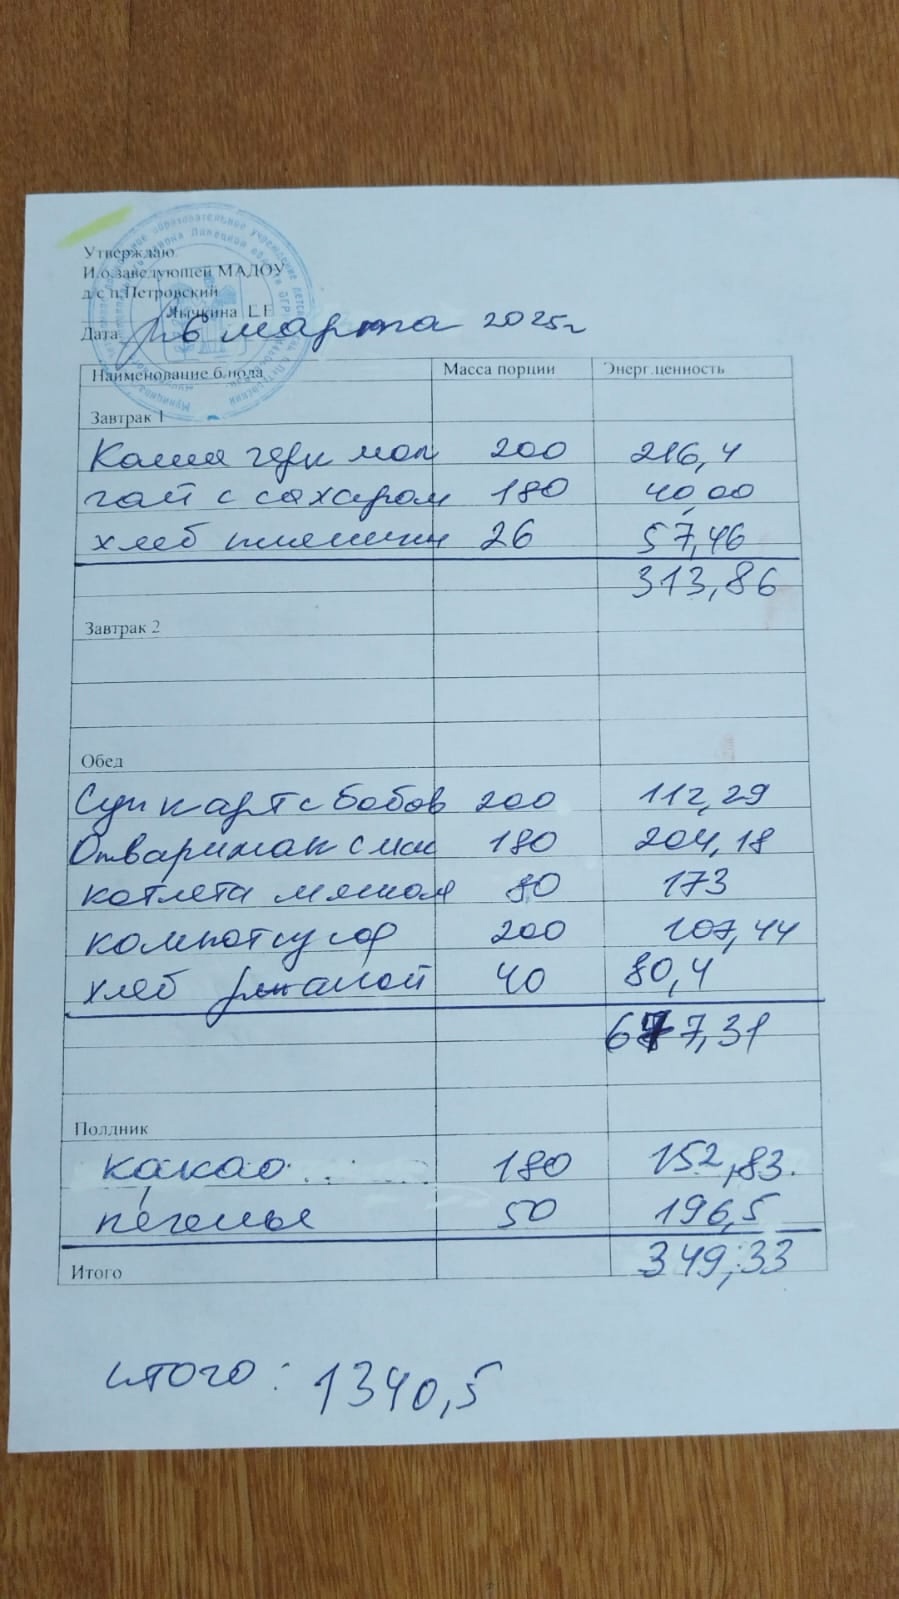 Утверждаю
И.о.заведующей МАДОУ
д/с п.Петровский
Лычкина Е.Е
Дата 26 марта 2025г
Наименование блюда Масса порции Энерг.ценность
Завтрак 1
Каша герк мол 200 216,4
чай с сахаром 180 40,00
хлеб пшеничн 26 57,46
313,86
Завтрак 2
Обед
Суп карт с бобов 200 112,29
Отвари мак с мас 180 204,18
котлета мясная 80 173
компот су фр 200 107,44
хлеб ржаной 40 80,4
677,31
Полдник
какао 180 152,83.
печенье 50 196,5
Итого 349,33
итого: 1340,5